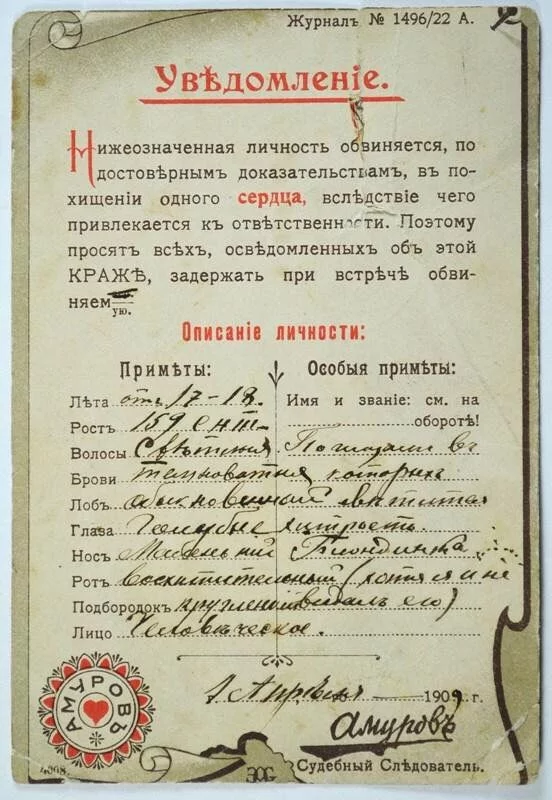 Журналъ № 1496/22 А.
Увѣдомленіе.
Нижеозначенная личность обвиняется, по
достовѣрнымъ доказательствамъ, въ по-
хищеніи одного сердца, вслѣдствіе чего
привлекается къ отвѣтственности. Поэтому
просятъ всѣхъ, освѣдомленныхъ объ этой
КРАЖѢ, задержать при встрѣчѣ обви-
няем
ую.
Описаніе личности:
Примѣты:
Лѣта отъ 17-18.
Ростъ 159 сент.
Волосы Свѣтлыя
Брови темноватыя
Лобъ обыкновенный
Глаза Голубые
Носъ Маленькій
Ротъ восхитительный (хотя я и не
Подбородокъ круглый видалъ его)
Лицо Человѣческое.
Особыя примѣты:
Имя и званіе: см. на
оборотѣ!
въ
которыхъ
хитрость.
Блондинка
1 Апрѣля 1909 г.
Амуровъ
Судебный Слѣдователь.
АМУРОВЪ
4008.